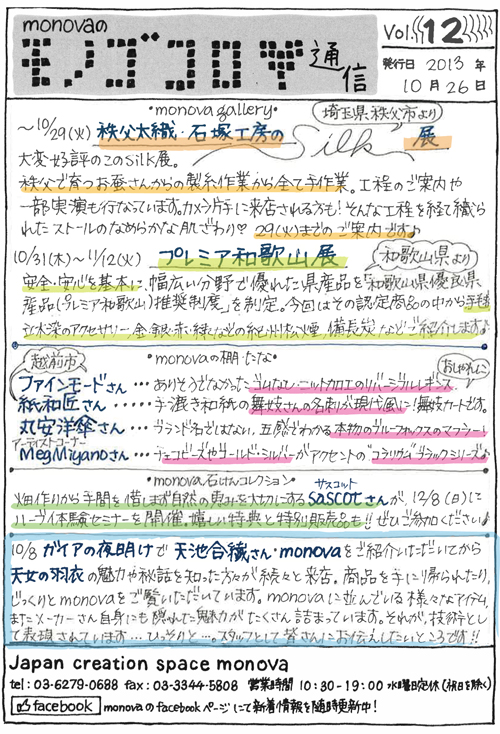 monovaの
モノゴコロ通信
Vol. 12
発行日 2013年
10月26日
・monova gallery・
埼玉県秩父市より
〜10/29(火) 秩父太織・石塚工房の Silk 展
大変好評のこのSilk展。
秩父で育つお蚕さんからの製糸作業から全て手作業。工程のご案内や
一部実演も行なっています。カメラ片手に来店される方も！そんな工程を経て織ら
れたストールのなめらかな肌ざわり♡ 29(火)までのご案内です♪
10/31(木)〜11/12(火) プレミア和歌山展
和歌山県より
安全・安心を基本に、幅広い分野で優れた県産品を「和歌山県優良県
産品(プレミア和歌山)推奨制度」を制定。今回はその認定商品の中から手毬
立木染のアクセサリー、金・銀・赤・緑などの紀州松煙、備長炭などご紹介します♪
・monovaの棚・たな・
越前市
おしゃれに
ファインモードさん・・・ありそうでなかったゴムなし・ニットカロエのリバーシブルレギンス
紙和匠さん・・・手漉き和紙の舞妓さんの名刺が現代風に！舞妓カードです。
丸安洋傘さん・・・ブランド名ではない、五感でわかる本物のブルーフォックスのマフラー！
アーティストコーナー
MegMiyanoさん・・・チェコビーズやゴールド・シルバーがアクセントの"コラリカム"ブラックシリーズ♪
・monova石けんコレクション・
サスコット
畑作りから手間を惜しまず自然の恵みを大切にするSASCOTさんが、12/8(日)に
ハーブ体験セミナーを開催。嬉しい特典と特別販売品も!! ぜひご参加ください♪
10/8 ガイアの夜明けで 天池合繊さん・monovaをご紹介いただいてから
天女の羽衣の魅力や秘話を知った方々が続々と来店。商品を手に取られたり、
じっくりとmonovaをご覧いただいています。monovaに並んでいる様々なアイテム、
またメーカーさん自身にも隠れた魅力がたくさん詰まっています。それが、技術とし
て表現されています…ひっそりと…。スタッフとして皆さんにお伝えしたいところです!!
Japan creation space monova
tel:03-6279-0688 fax:03-3344-5808 営業時間 10:30-19:00 水曜日定休(祝日を除く)
facebook monovaのfacebookページにて新着情報を随時更新中！